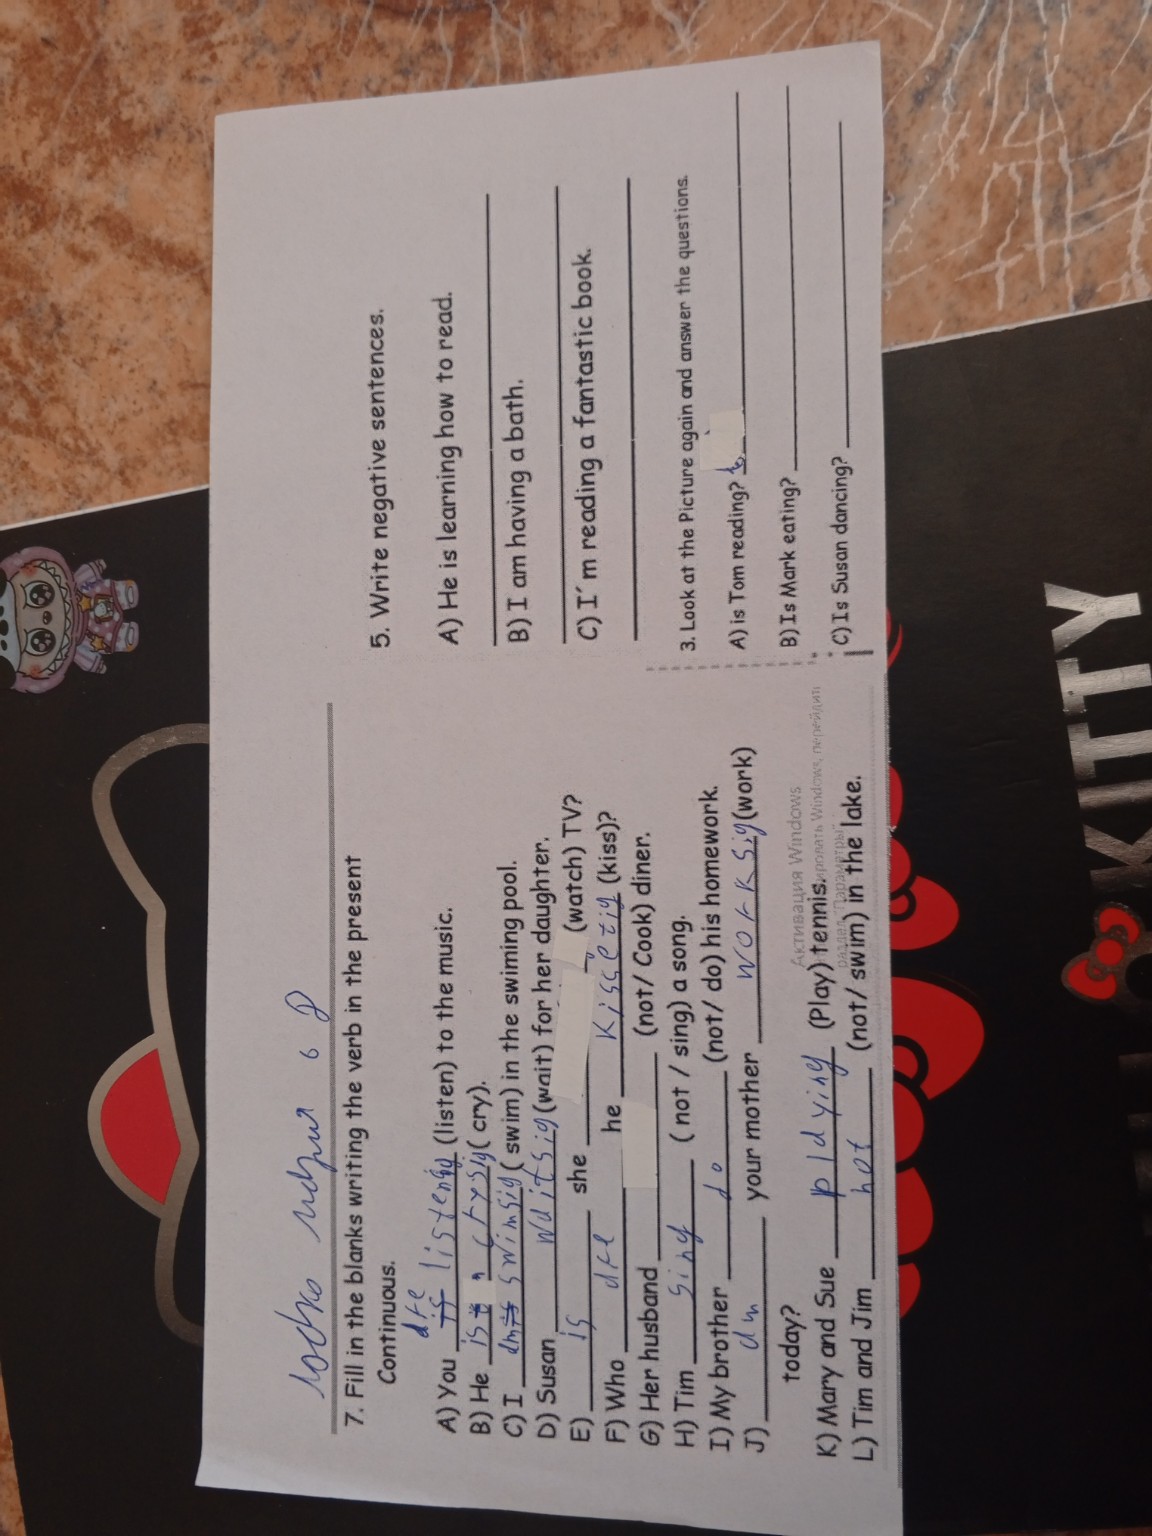 6
7. Fill in the blanks writing the verb in the present
Continuous.
A) You is are listeng (listen) to the music.
B) He is crysig ( cry).
C) I am is swimsig ( swim) in the swiming pool.
D) Susan waitsig (wait) for her daughter.
E) is she (watch) TV?
F) Who are he kissetig (kiss)?
G) Her husband (not/ Cook) diner.
H) Tim sing ( not / sing) a song.
I) My brother do (not/ do) his homework.
J) am your mother worksig (work)
today?
K) Mary and Sue playing (Play) tennis.
L) Tim and Jim not (not/ swim) in the lake.
Активация Windows
Windows, перейдите
раздел "Параметры"
5. Write negative sentences.
A) He is learning how to read.
B) I am having a bath.
C) I´m reading a fantastic book.
3. Look at the Picture again and answer the questions.
A) is Tom reading?
B) Is Mark eating?
C) Is Susan dancing?
KITTY